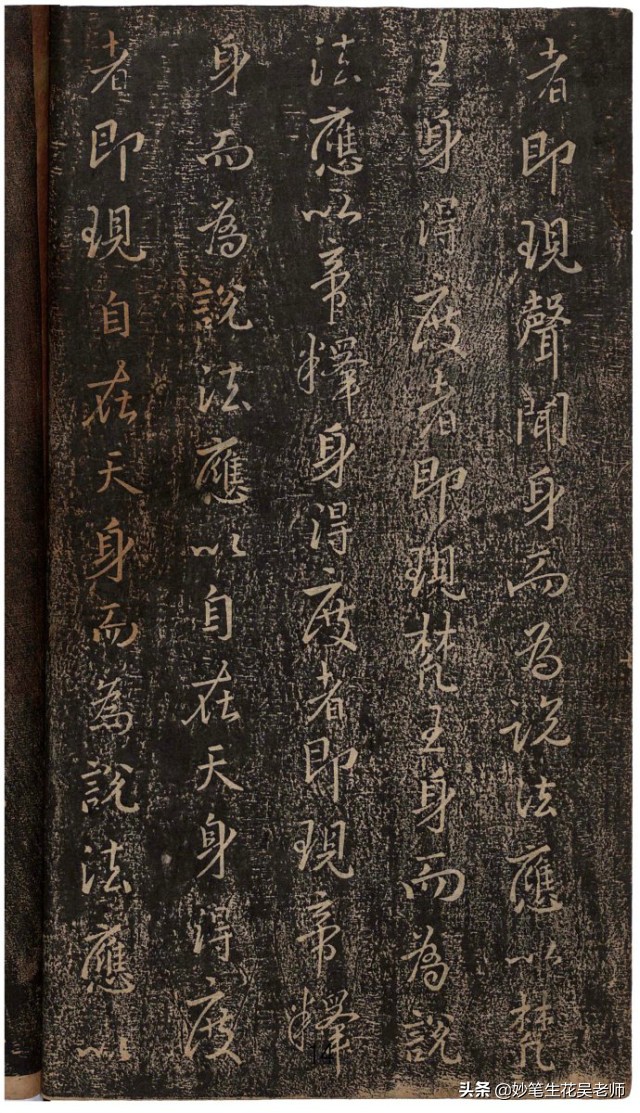 者即現聲聞身而為説法應以梵
王身得度者即現梵王身而為說
法應以帝釋身得度者即現帝釋
身而為說法應以自在天身得度
者即現自在天身而為說法應以
14
头条 @妙笔生花吴老师